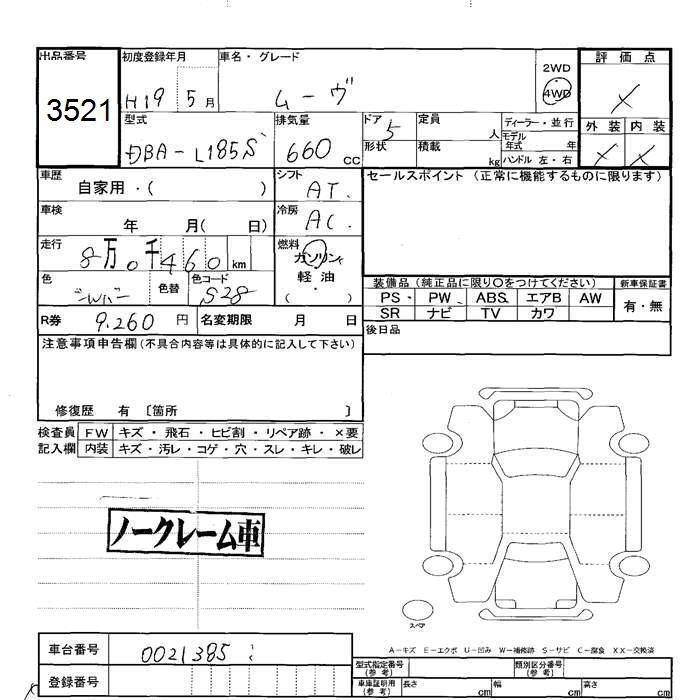 出品番号 初度登録年月 車名・グレード 2WD 評価点
3521 H19 5月 ムーヴ 4WD ×
型式 排気量 ドア 定員 ディーラー・並行 外装 内装
DBA-L185S 660cc 5 人 モデル年式 年 × ×
形状 積載 kg ハンドル 左・右
車歴 自家用・( ) シフト AT. セールスポイント (正常に機能するものに限ります)
車検 年 月( 日) 冷房 AC.
走行 8万0千460km 燃料 ガソリン
軽油
・( )
色 シルバー 色替 色コード S28 装備品 (純正品に限り〇をつけてください) 新車保証書
PS PW ABS エアB AW 有・無
R券 9.260円 名変期限 月 日 SR ナビ TV カワ
後日品
注意事項申告欄(不具合内容等は具体的に記入して下さい)
修復歴 有 〔箇所 〕
検査員 FW キズ・飛石・ヒビ割・リペア跡・×要
記入欄 内装 キズ・汚レ・コゲ・穴・スレ・キレ・破レ
ノークレーム車
スペア
A-キズ E-エクボ U-凹み W-補修跡 S-サビ C-腐食 XX-交換済
車台番号 0021385
型式指定番号(参考) 類別区分番号(参考)
登録番号 車庫証明用(参考) 長さ cm 幅 cm 高さ cm